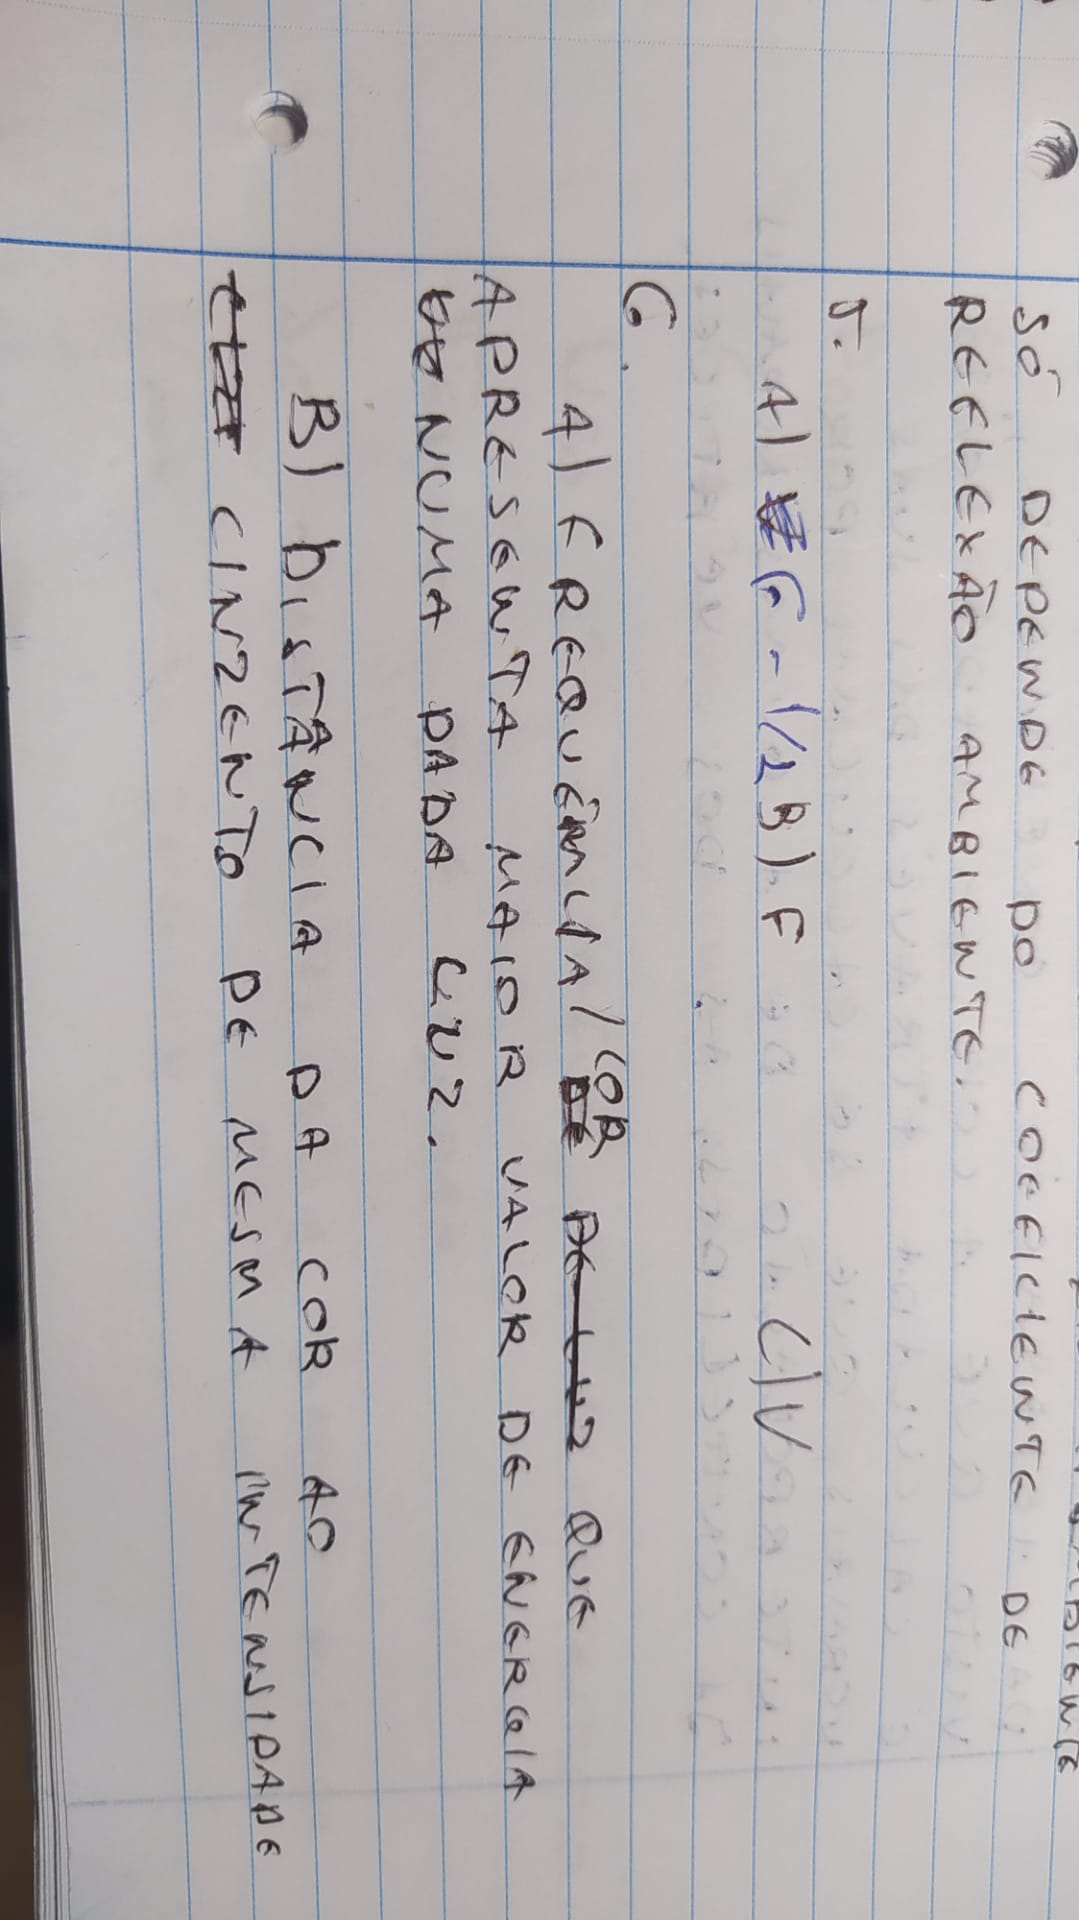 SÓ DEPENDE DO COEFICIENTE DE
REFLEXÃO AMBIENTE.
5.
A) F - 1/2 B) F C) V
6.
A) FREQUÊNCIA / COR QUE
APRESENTA MAIOR VALOR DE ENERGIA
NUMA DADA LUZ.
B) DISTÂNCIA DA COR AO
CINZENTO DE MESMA INTENSIDADE